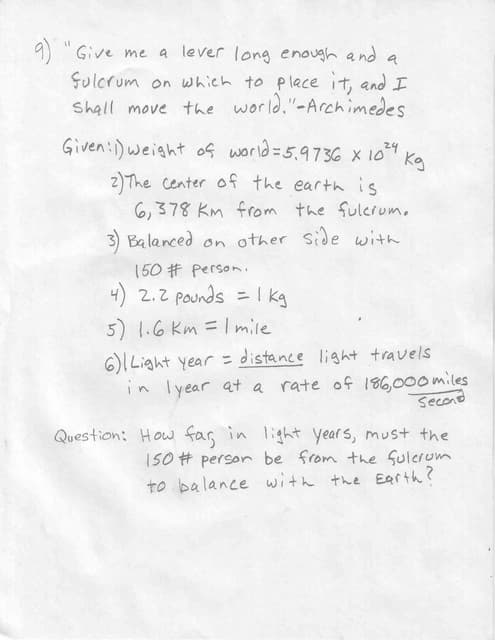 9) "Give me a lever long enough and a
fulcrum on which to place it, and I
shall move the world."-Archimedes
Given: 1) weight of world = 5.9736 x 10²⁴ Kg
2) The center of the earth is
6,378 Km from the fulcrum.
3) Balanced on other side with
150 # person.
4) 2.2 pounds = 1 kg
5) 1.6 Km = 1 mile
6) 1 Light year = distance light travels
in 1 year at a rate of 186,000 miles
second
Question: How far, in light years, must the
150 # person be from the fulcrum
to balance with the Earth?